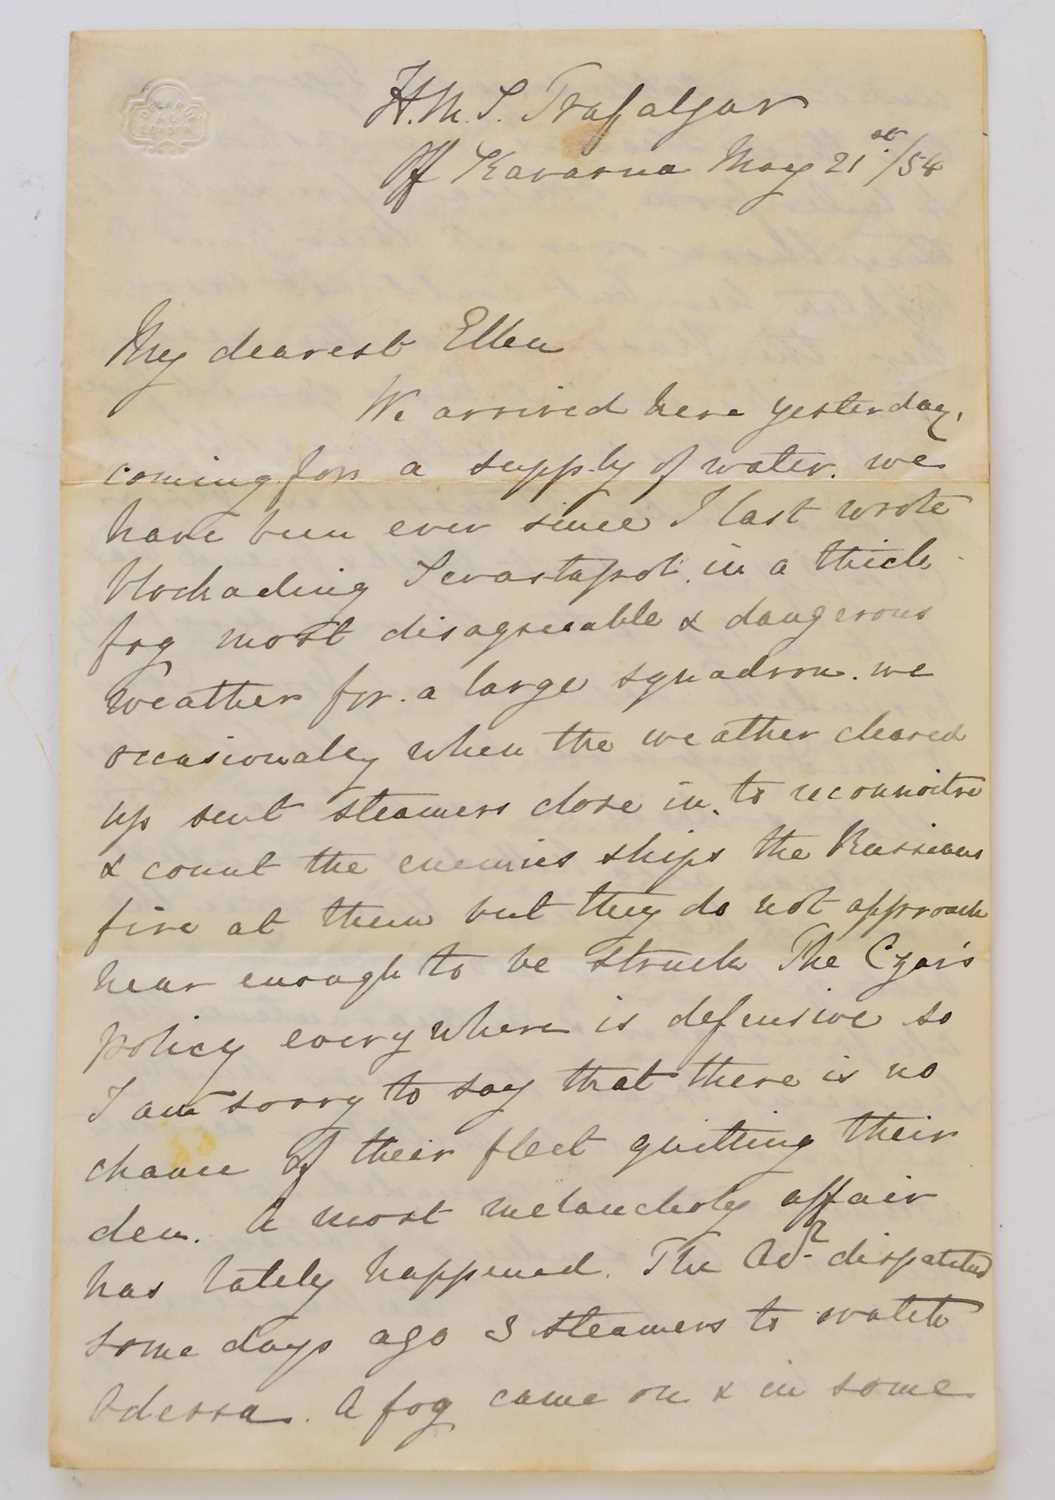 H.M.S. Trafalgar
Off Kavarna May 21st/54
My dearest Ellen
We arrived here yesterday,
coming for a supply of water. we
have been ever since I last wrote
blockading Sevastapol. in a thick
fog most disagreeable & dangerous
weather for a large squadron. we
occasionaley when the weather cleared
up sent steamers close in. to reconnoitre
& count the enemies ships the Russians
fire at them but they do not approach
near enough to be struck The Czar's
policy everywhere is defensive so
I am sorry to say that there is no
chance of their fleet quitting their
den. A most melancholy affair
has lately happened. The Adl dispatched
some days ago 3 steamers to watch
Odessa. A fog came on & in some